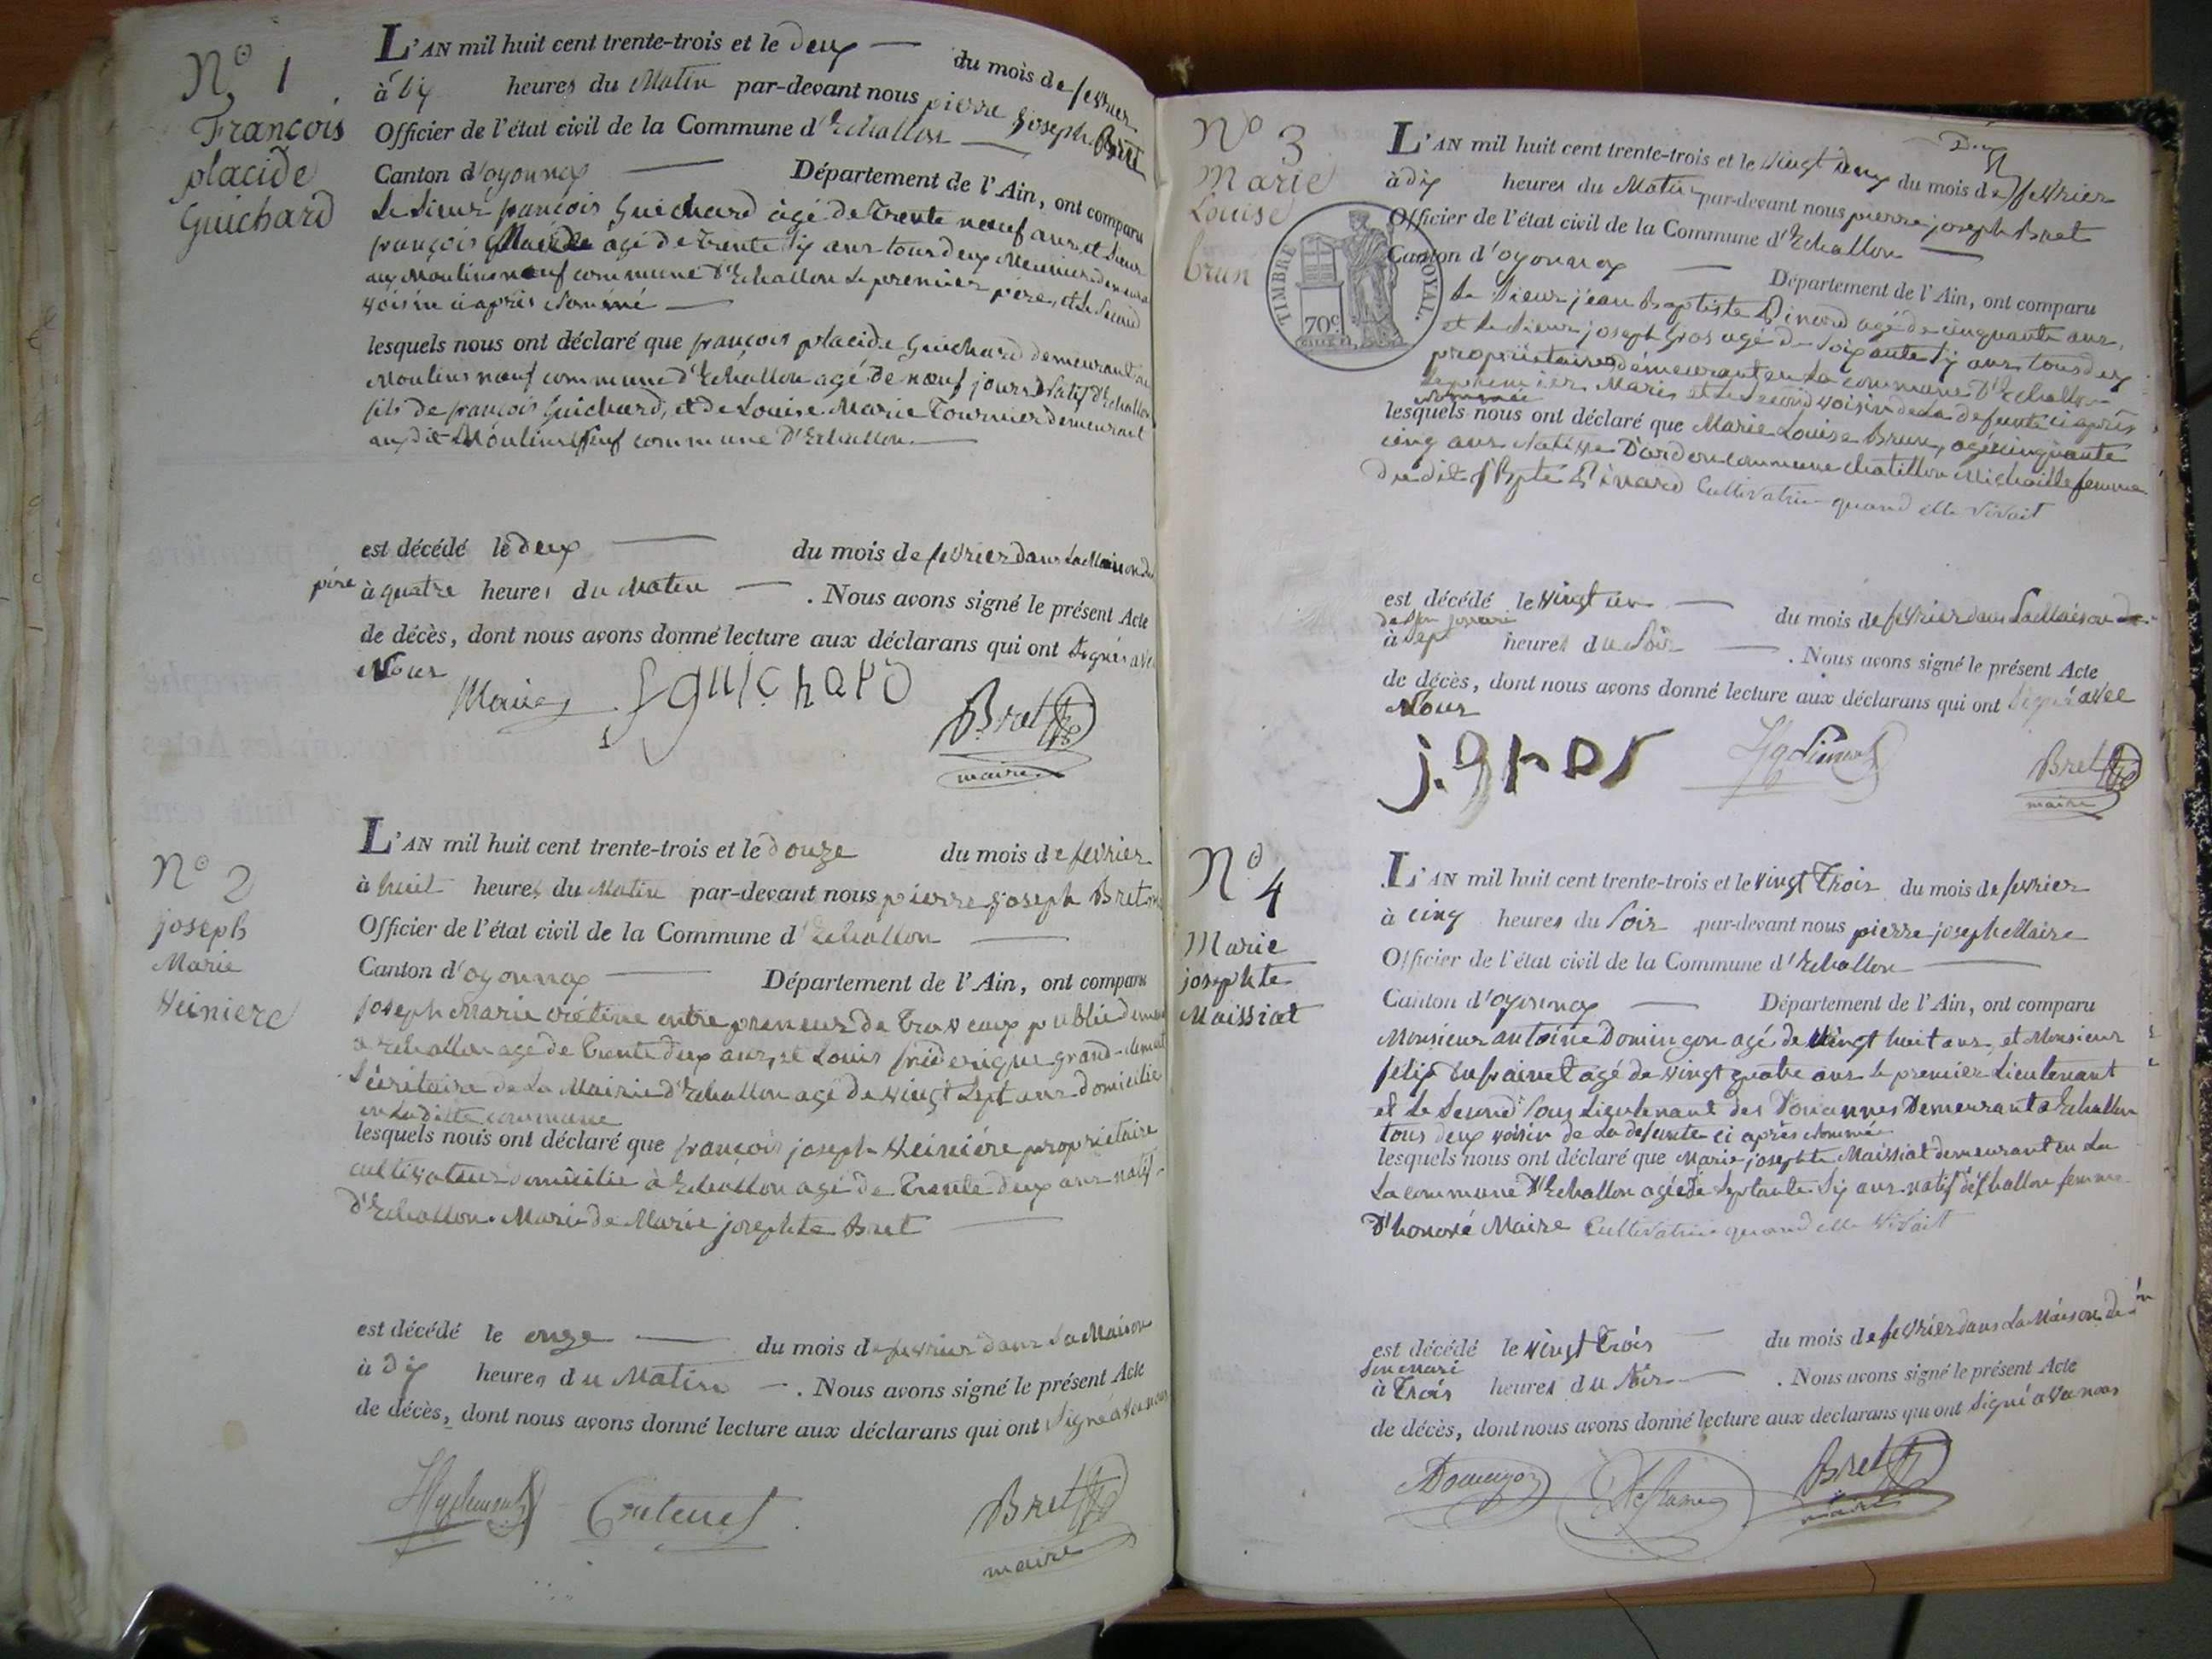 N.º 1
François
placide
Guichard
L'AN mil huit cent trente-trois et le deux du mois de fevrier
à dix heures du Matin par-devant nous pierre joseph Bret
Officier de l'état civil de la Commune d'Echallon
Canton d'oyonnax Département de l'Ain, ont comparu
Le Sieur françois Guichard âgé de trente neuf ans et Sieur
françois âgé de trente six ans tous deux Meuniers
aux Moulins neuf commune d'Echallon Le premier père, et Le Second
voisin ci après Nommé
lesquels nous ont déclaré que françois placide Guichard demeurant au
Moulins neuf commune d'Echallon agé De neuf jours Natif d'Echallon
fils de françois Guichard, et de Louise Marie Tournier demeurant
audit Moulins Neuf commune D'Echallon.
est décédé le deux du mois de fevrier dans La Maison du
père à quatre heures du Matin . Nous avons signé le présent Acte
de décès, dont nous avons donné lecture aux déclarans qui ont Signés avec
Nous
Maire f guichard Bret
maire
N.º 2
joseph
Marie
Heiniere
L'AN mil huit cent trente-trois et le douze du mois de fevrier
à huit heures du Matin par-devant nous pierre joseph Bret
Officier de l'état civil de la Commune d'Echallon
Canton d'oyonnax Département de l'Ain, ont comparu
joseph Marie entrepreneur de Travaux public
a Echallon age de trente deux ans, et Louis frèderique grand-clement
Sécrétaire de La Mairie d'Echallon agé de vingt Sept ans domicilié
en La ditte commune
lesquels nous ont déclaré que françois joseph Heiniére propriétaire
cultivateur domicilié à Echallon agé de Trente deux ans natif
d'Echallon. Mari de Marie josephte Bret
est décédé le onze du mois de fevrier dans La Maison
à Dix heures du Matin . Nous avons signé le présent Acte
de décès, dont nous avons donné lecture aux déclarans qui ont Signé avec nous
Bret
maire
N.º 3
Marie
Louise
brun
TIMBRE ROYAL.
70c
L'AN mil huit cent trente-trois et le vingt deux du mois de fevrier
à dix heures du Matin par-devant nous pierre joseph Bret
Officier de l'état civil de la Commune d'Echallon
Canton d'oyonnax Département de l'Ain, ont comparu
Le Sieur jean Baptiste agé de cinquante ans,
et Le Sieur joseph Gros agé de Soixante Six ans tous deux
propriétaires demeurant en La commune D'Echallon
Le premier Maris et Le Second voisin de La defunte ci après
nommée
lesquels nous ont déclaré que Marie Louise Brun, agé cinquante
cinq ans Native D'ardon commune chatillon Michaille femme
du dit Cultivatrice quand elle vivait
est décédé le vingt un du mois de fevrier dans La Maison
à Sept heures du Soir . Nous avons signé le présent Acte
de décès, dont nous avons donné lecture aux déclarans qui ont Signé avec
Nous
j. gros Bret
maire
N.º 4
Marie
josephte
Maissiat
L'AN mil huit cent trente-trois et le vingt Trois du mois de fevrier
à cinq heures du Soir par-devant nous pierre joseph Maire
Officier de l'état civil de la Commune d'Echallon
Canton d'oyonnax Département de l'Ain, ont comparu
Monsieur antoine Domingon agé de Vingt huit ans, et Monsieur
félix agé de vingt quatre ans le premier Lieutenant
et Le Second Sous Lieutenant des Douannes Demeurant a Echallon
tous deux voisin de La defunte ci après Nommée
lesquels nous ont déclaré que Marie josephte Maissiat demeurant en La
La commune d'Echallon agée De Septante Six ans natif d'échallon femme
D'honoré Maire Cultivatrice quand elle vivait
est décédé le vingt trois du mois de fevrier dans La Maison de
Son mari
à Trois heures du Soir . Nous avons signé le présent Acte
de décès, dont nous avons donné lecture aux déclarans qui ont Signé avec nous
Bret
maire